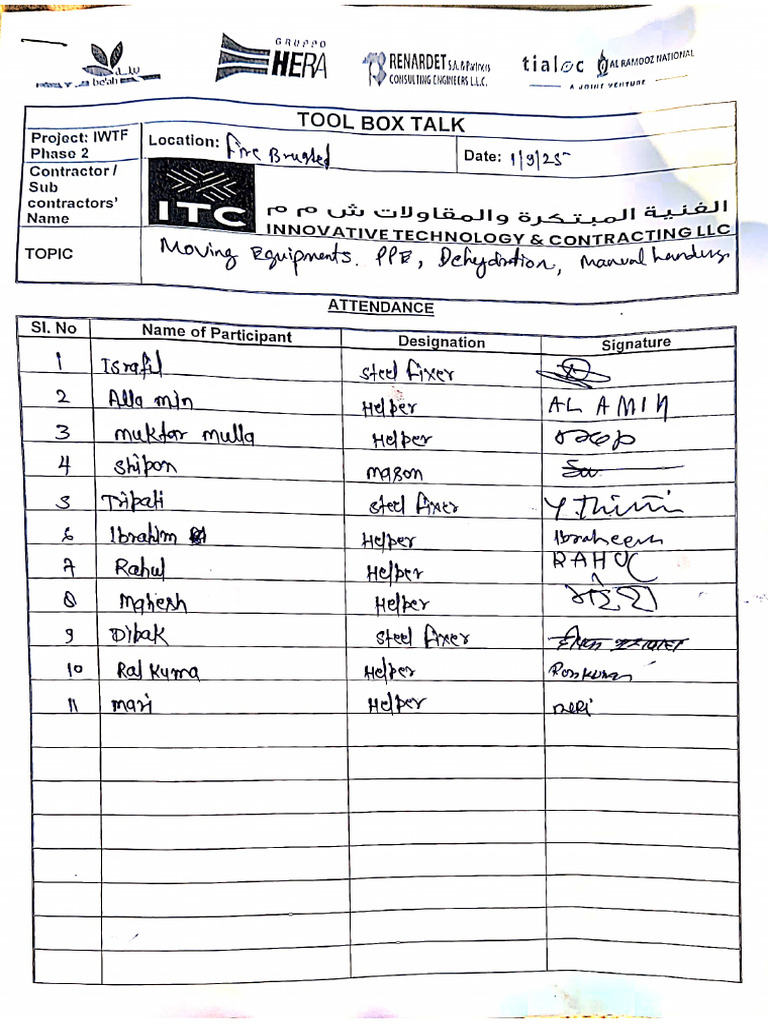 be'ah
GRUPPO
HERA
RENARDET S.A. & Partners
CONSULTING ENGINEERS L.L.C.
tialoc AL RAMOOZ NATIONAL
A JOINT VENTURE
TOOL BOX TALK
Project: IWTF Phase 2
Location: Fire
Date: 1/9/25
Contractor / Sub contractors' Name
ITC
الغنية المبتكرة والمقاولات ش م م
INNOVATIVE TECHNOLOGY & CONTRACTING LLC
TOPIC
Moving Equipments. PPE, Dehydration, Manual
ATTENDANCE
Sl. No Name of Participant Designation Signature
1 Israfil Steel Fixer
2 Alla min Helper AL AMIN
3 muktar mulla Helper
4 Shipon mason
5 Tripati Steel Fixer
6 Ibrahim Helper Ibraheem
7 Rahul Helper RAHUL
8 Mahesh Helper
9 Dibak Steel Fixer
10 Raj Kuma Helper
11 mari Helper